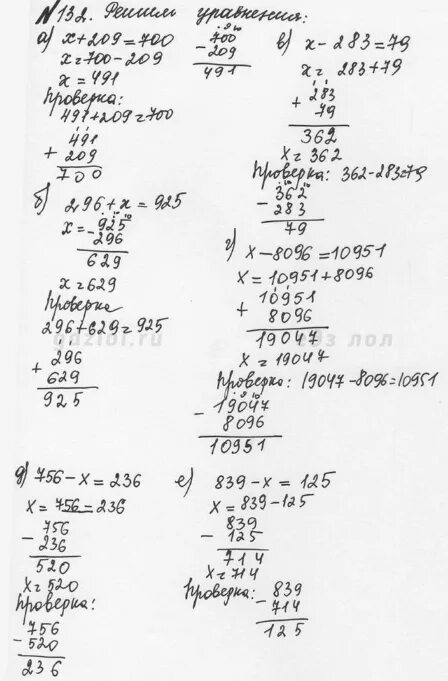 №132. Решим уравнения:
а) x+209=700
x=700-209
x=491
700
- 209
491
Проверка:
491+209=700
491
+ 209
700
б) 296+x=925
x= 925
- 296
629
x=629
Проверка
296+629=925
296
+ 629
925
в) x-283=79
x= 283+79
283
+ 79
362
x=362
Проверка: 362-283=79
362
- 283
79
г)
x-8096=10951
x=10951+8096
10951
+ 8096
19047
x=19047
Проверка: 19047-8096=10951
19047
- 8096
10951
д) 756-x=236
x=756-236
756
- 236
520
x=520
Проверка:
756
- 520
236
е) 839-x=125
x=839-125
839
- 125
714
x=714
Проверка:
839
- 714
125